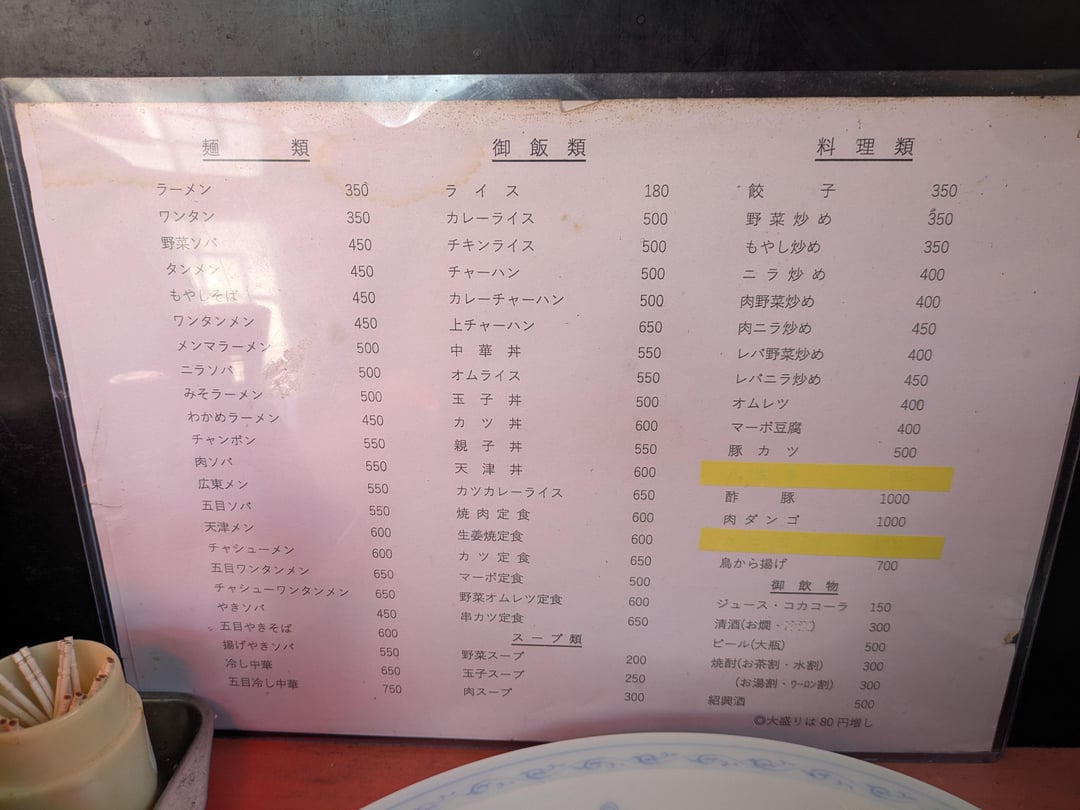 麺 類
ラーメン 350
ワンタン 350
野菜ソバ 450
タンメン 450
もやしそば 450
ワンタンメン 450
メンマラーメン 500
ニラソバ 500
みそラーメン 500
わかめラーメン 450
チャンポン 550
肉ソバ 550
広東メン 550
五目ソバ 550
天津メン 600
チャシューメン 600
五目ワンタンメン 650
チャシューワンタンメン 650
やきソバ 450
五目やきそば 600
揚げやきソバ 550
冷し中華 650
五目冷し中華 750
御 飯 類
ラ イ ス 180
カレーライス 500
チキンライス 500
チャーハン 500
カレーチャーハン 500
上チャーハン 650
中 華 丼 550
オムライス 550
玉 子 丼 500
カ ツ 丼 600
親 子 丼 550
天 津 丼 600
カツカレーライス 650
焼 肉 定 食 600
生姜焼定食 600
カ ツ 定 食 650
マーボ定食 500
野菜オムレツ定食 600
串カツ定食 650
スープ類
野菜スープ 200
玉子スープ 250
肉スープ 300
料 理 類
餃 子 350
野 菜 炒 め 350
もやし炒め 350
ニ ラ 炒 め 400
肉野菜炒め 400
肉ニラ炒め 450
レバ野菜炒め 400
レバニラ炒め 450
オムレツ 400
マーボ豆腐 400
豚 カ ツ 500
酢 豚 1000
肉 ダ ン ゴ 1000
鳥から揚げ 700
御 飲 物
ジュース・コカコーラ 150
清酒(お燗・ ) 300
ビール(大瓶) 500
焼酎(お茶割・水割) 300
(お湯割・ウーロン割) 300
紹興酒 500
◎大盛りは80円増し